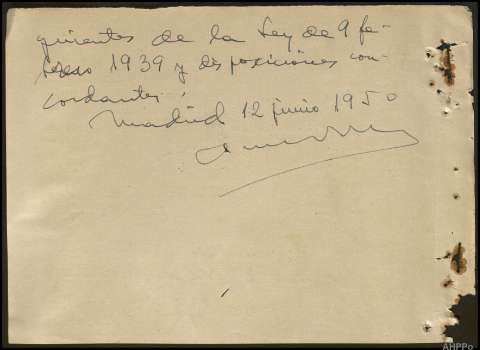 guientes de la Ley de 9 fe-
brero 1939 y disposiciones con-
cordantes.
Madrid 12 junio 1950
AHPPo